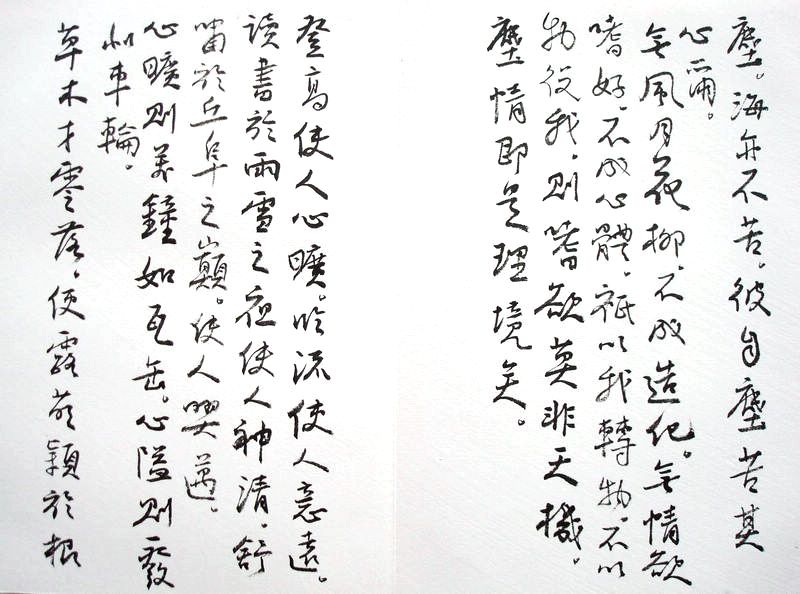 塵。海亦不苦。彼自塵苦其
心爾。
無風月花柳。不成造化。無情欲
嗜好。不成心體。祇以我轉物。不以
物役我。則嗜欲莫非天機。
塵情即是理境矣。
登高使人心曠。臨流使人意遠。
讀書於雨雪之夜使人神清。舒
嘯於丘阜之巔。使人興邁。
心曠則萬鐘如瓦缶。心隘則一髮
似車輪。
草木才零落。便露萌穎於根